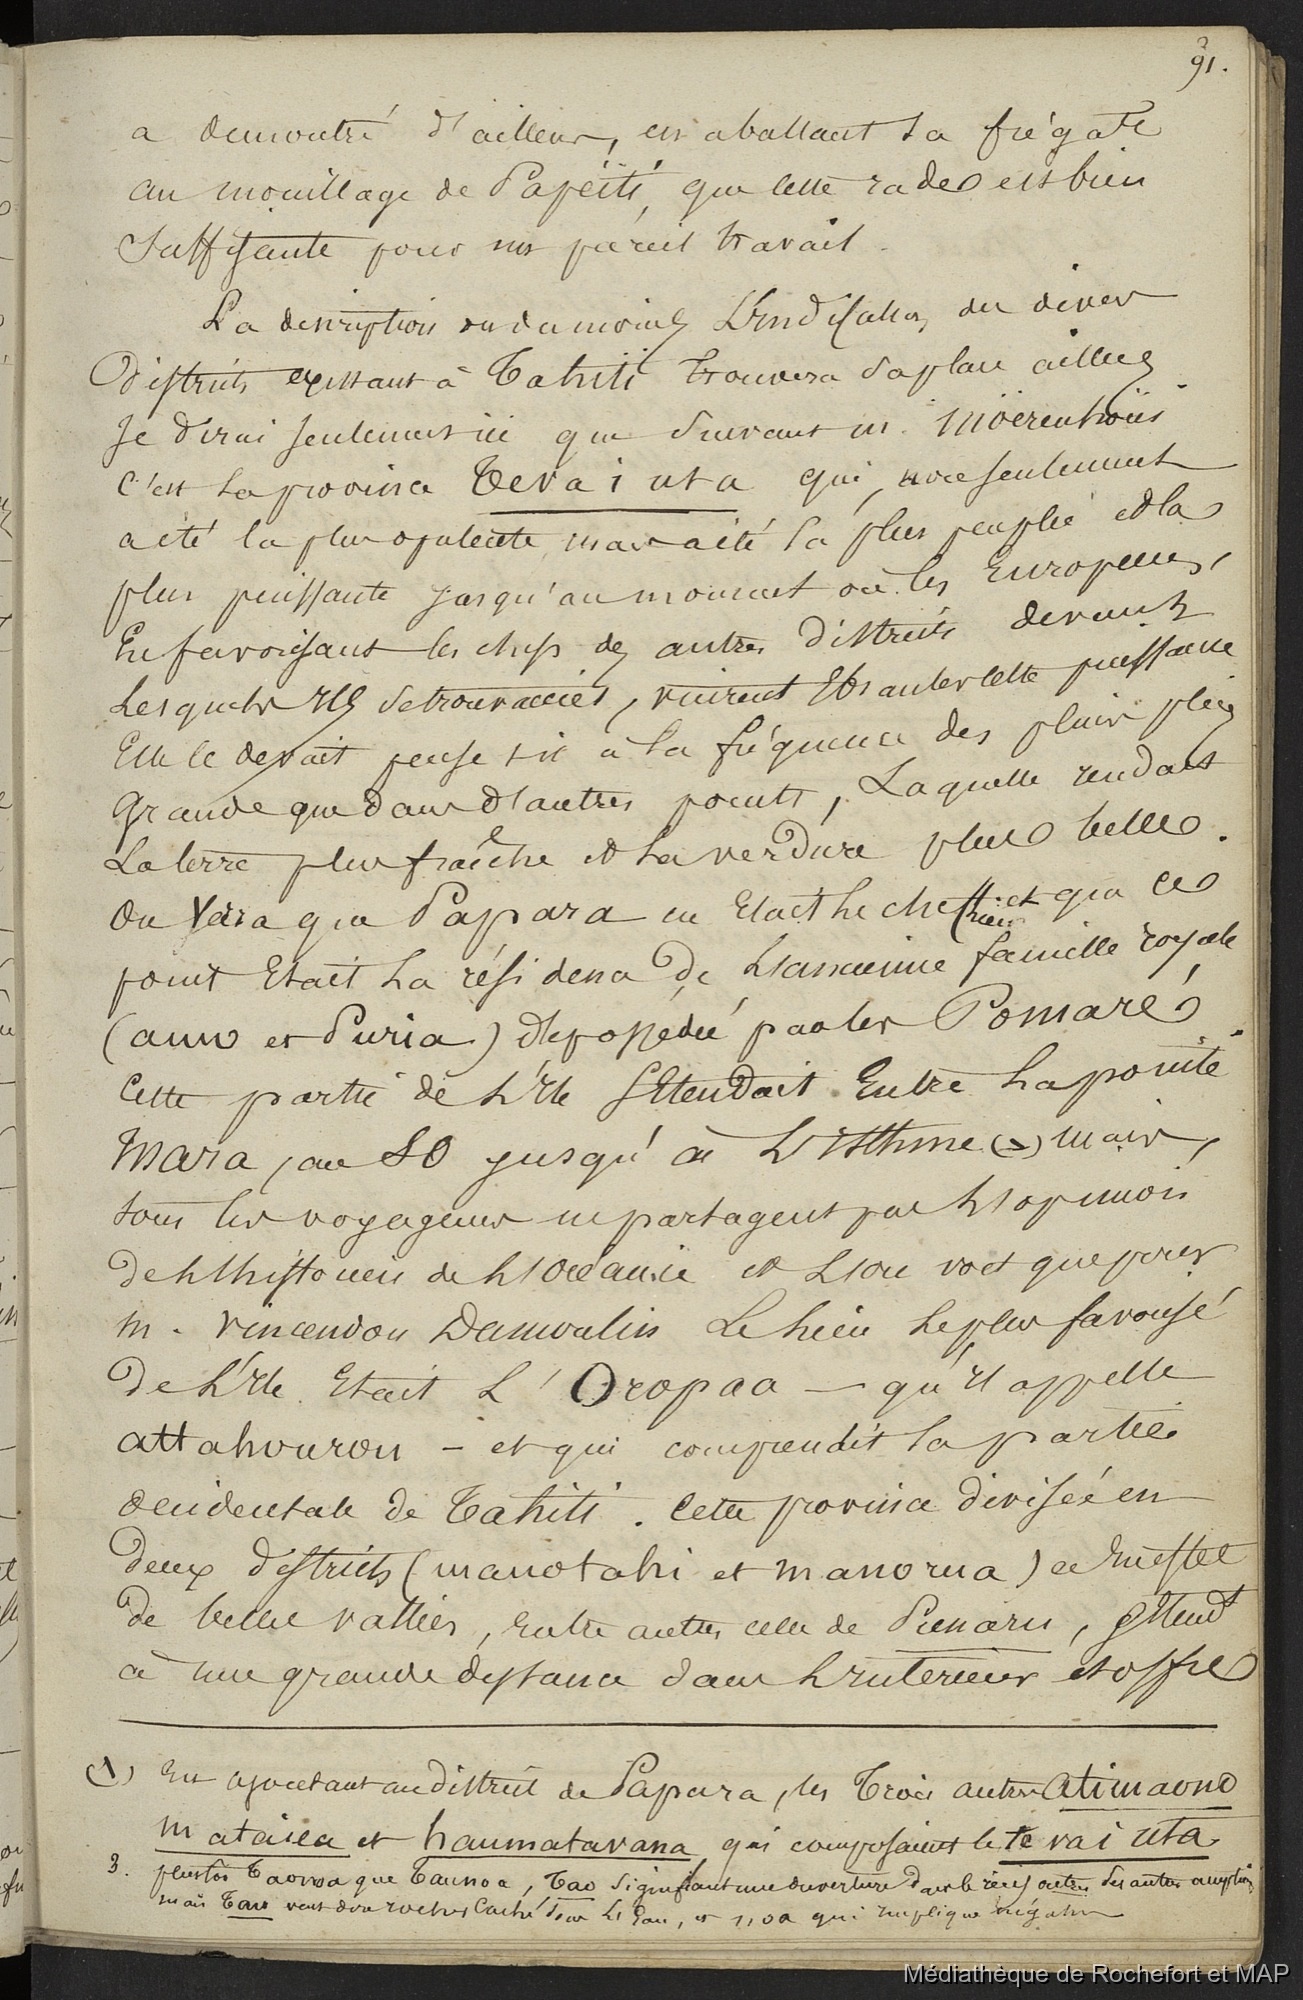 91.
a demontré d'ailleurs, en abattant la frégate
au mouillage de Papéiti, que cette rade est bien
suffisante pour un pareil travail.
La description ou du moins L'indication des divers
districts existant à Tahiti trouvera sa place ailleurs
Je dirai seulement ici que suivant M. Moerenhoüt
C'est la province Tevai uta qui, non seulement
a été la plus opulente mais a été la plus peuplée et la
plus puissante jusqu'au moment où les Européens,
En favorisant les chefs des autres districts devant
Lesquels ils se trouvaient, vinrent Ebranler cette puissance
Elle le devait pense t-il à la fréquence des pluies plus
Grande que dans d'autres points, Laquelle rendait
La terre plus fraîche et la verdure plus belle.
On sait que Papara en Etait le chef lieu et que ce
point Etait la résidence de l'ancienne famille royale
(amo et Puria) dépossédée par les Pomaré.
Cette partie de l'île s'Etendait Entre la pointe
Mara, au SO jusqu'à L'isthme (1) mais,
tous les voyageurs ne partagent pas l'opinion
de l'historien de l'Océanie et L'on voit que pour
M. Vincendon Dumoulin Le lieu le plus favorisé
de L'île Etait L'Oropaa — qu'il appelle
attahourou — et qui comprendit la partie
occidentale de Tahiti. Cette province divisée en
deux districts (manotahi et manorua) a En effet
de belles vallées, Entre autres celle de Punaru, s'Etend
à une grande distance dans L'intérieur et offre
(1) En ajoutant au district de Papara, les Trois autres atimaono
mataiea et haumatavana qui composaient le te vai uta.
3. plustôt Taonoa que Taunoa, Tao signifiant une ouverture dans le récif entre autres acceptions
mais Tau veut dire rocher Caché sous L'Eau, et noa qui implique négation
Médiathèque de Rochefort et MAP